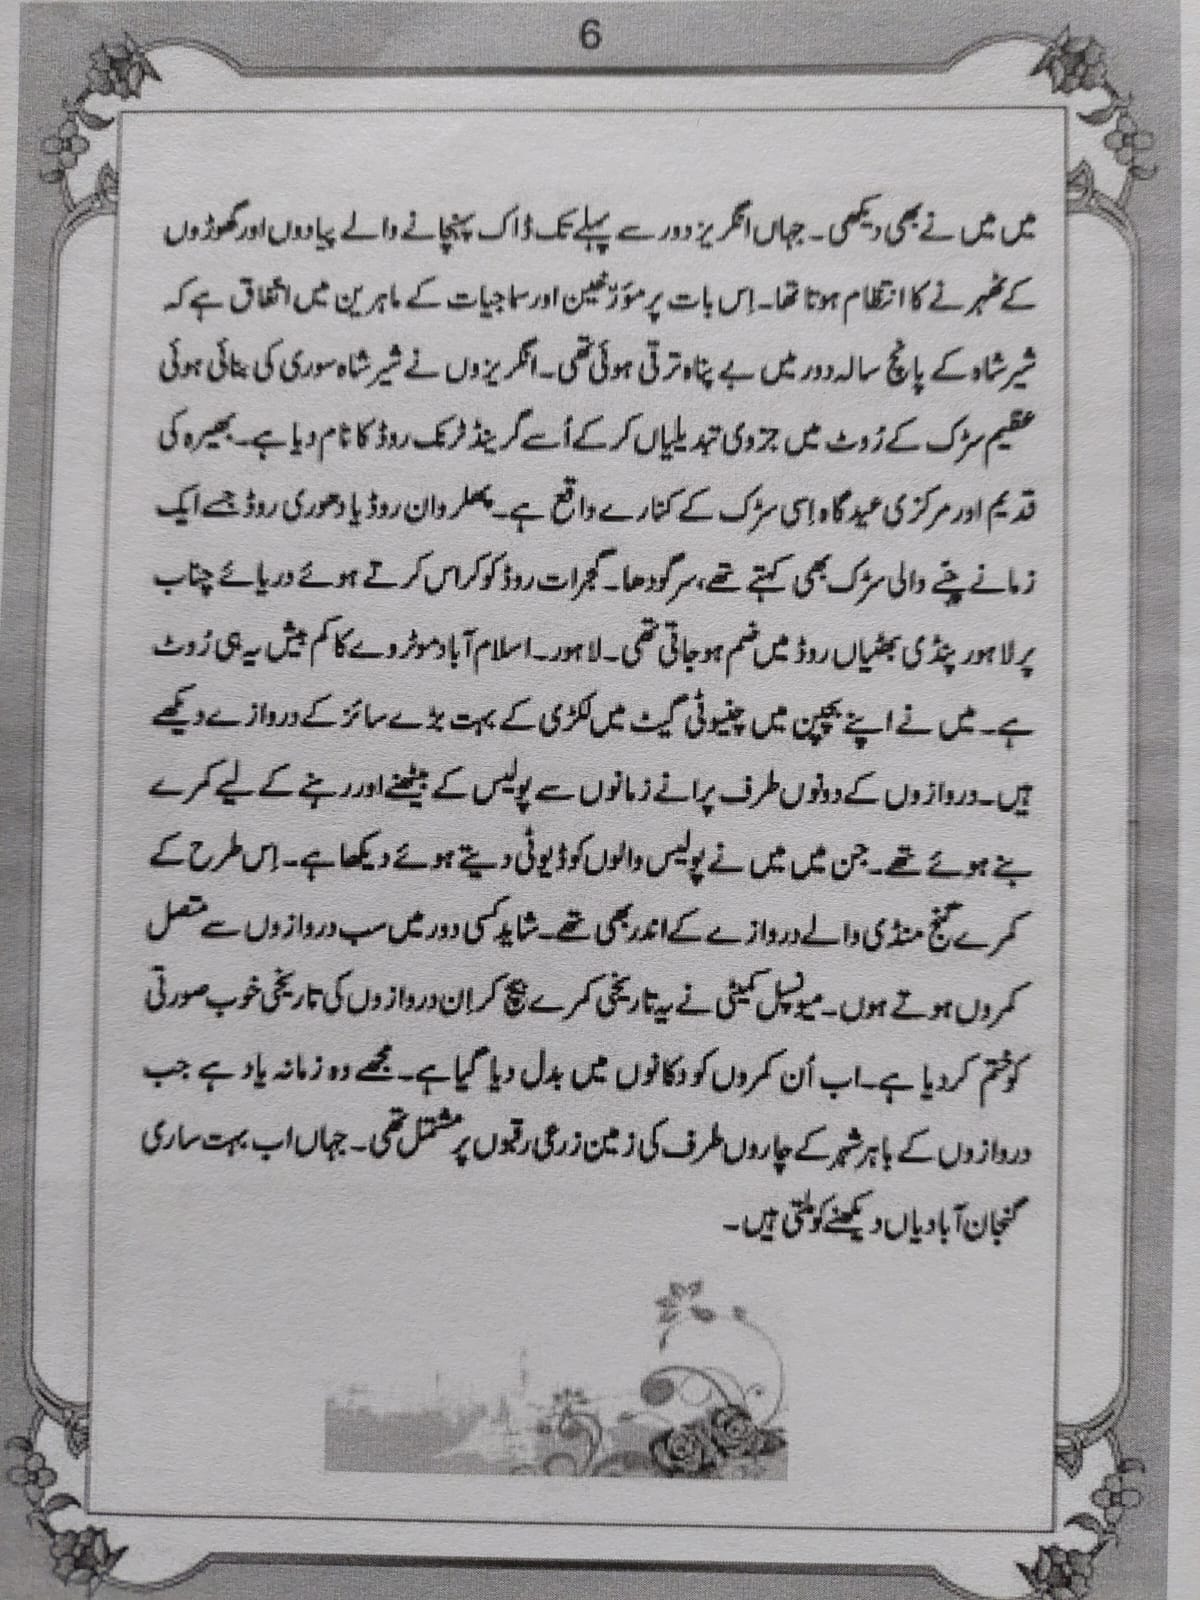 6
میں میں نے بھی دیکھی۔ جہاں انگریز دور سے پہلے تک ڈاک پہنچانے والے پیادوں اور گھوڑوں
کے ٹھہرنے کا انتظام ہوتا تھا۔ اِس بات پر مؤرخین اور سماجیات کے ماہرین میں اتفاق ہے کہ
شیر شاہ کے پانچ سالہ دور میں بے پناہ ترقی ہوئی تھی۔ انگریزوں نے شیر شاہ سوری کی بنائی ہوئی
عظیم سڑک کے رُوٹ میں جزوی تبدیلیاں کر کے اُسے گرینڈ ٹرنک روڈ کا نام دیا ہے۔ بھیرہ کی
قدیم اور مرکزی عیدگاہ اِسی سڑک کے کنارے واقع ہے۔ پھلروان روڈ یا دھوری روڈ جسے ایک
زمانے چنے والی سڑک بھی کہتے تھے، سرگودھا۔ گجرات روڈ کو کراس کرتے ہوئے دریائے چناب
پر لاہور پنڈی بھٹیاں روڈ میں ضم ہو جاتی تھی۔ لاہور۔ اسلام آباد موٹر وے کا کم بیش یہ ہی رُوٹ
ہے۔ میں نے اپنے بچپن میں چنیوٹی گیٹ میں لکڑی کے بہت بڑے سائز کے دروازے دیکھے
ہیں۔ دروازوں کے دونوں طرف پرانے زمانوں سے پولیس کے بیٹھنے اور رہنے کے لیے کمرے
بنے ہوئے تھے۔ جن میں میں نے پولیس والوں کو ڈیوٹی دیتے ہوئے دیکھا ہے۔ اِس طرح کے
کمرے گنج منڈی والے دروازے کے اندر بھی تھے۔ شاید کسی دور میں سب دروازوں سے متصل
کمروں ہوتے ہوں۔ میونسپل کمیٹی نے یہ تاریخی کمرے بیچ کر اِن دروازوں کی تاریخی خوب صورتی
کو ختم کر دیا ہے۔ اب اُن کمروں کو دکانوں میں بدل دیا گیا ہے۔ مجھے وہ زمانہ یاد ہے جب
دروازوں کے باہر شہر کے چاروں طرف کی زمین زرعی رقبوں پر مشتمل تھی۔ جہاں اب بہت ساری
گنجان آبادیاں دیکھنے کو ملتی ہیں۔